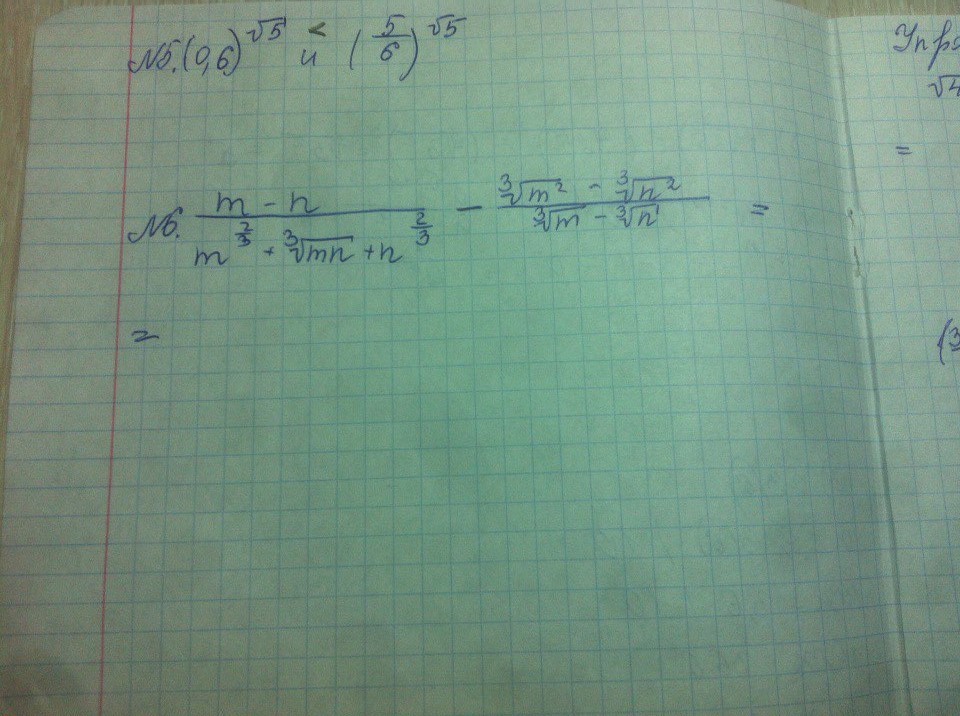 №5. (0,6)^√5 < и (5/6)^√5
№6. (m - n)/(m^(2/3) + ∛mn + n^(2/3)) - (∛m² - ∛n²)/(∛m - ∛n) =
=
Упр
=